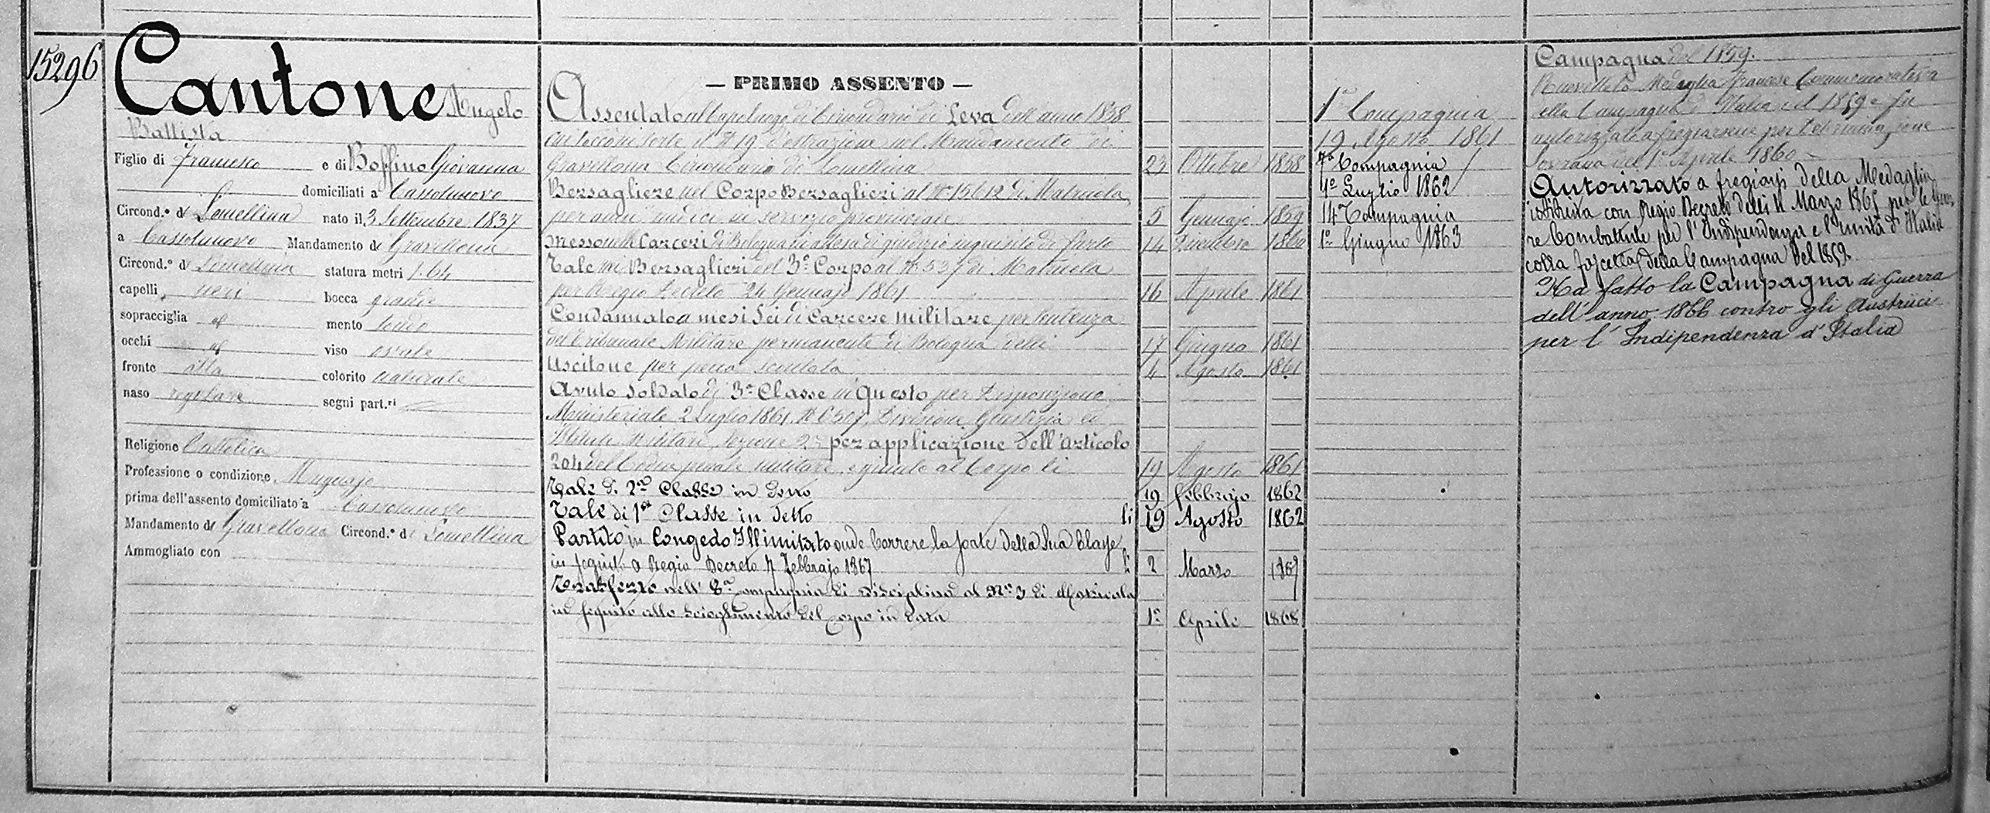 15296
Cantone Angelo
Battista
Figlio di Francesco e di Boffino Giovanna
domiciliati a Cassolnovo
Circond.º di Lomellina nato il 3 Settembre 1837
a Cassolnovo Mandamento di Gravellona
Circond.º di Lomellina statura metri 1.64
capelli neri bocca grande
sopracciglia id mento tondo
occhi id viso ovale
fronte alta colorito naturale
naso regolare segni part.ri
Religione Cattolica
Professione o condizione Mugnajo
prima dell'assento domiciliato a Cassolnovo
Mandamento di Gravellona Circond.º di Lomellina
Ammogliato con
— PRIMO ASSENTO —
Assentato al Capoluogo di Circondario di Leva dell'anno 1838
cui toccò in sorte il Nº 19 d'estrazione nel Mandamento di
Gravellona Circondario di Lomellina 23 Ottobre 1858
Bersagliere nel Corpo Bersaglieri al Nº 15612 di Matricola
per anni undici in servizio provinciale 5 Gennajo 1859
Messo nelle Carceri di Bologna in attesa di giudizio inquisito di furto 14 Dicembre 1860
Tale nei Bersaglieri del 3º Corpo al Nº 537 di Matricola
per Regio Decreto 24 Gennajo 1861 16 Aprile 1861
Condannato a mesi sei di Carcere Militare per sentenza
del Tribunale Militare permanente di Bologna delli 17 Giugno 1861
Uscitone per pena scontata 4 Agosto 1861
Avuto Soldato di 3ª Classe in Questo per Disposizione
Ministeriale 2 Luglio 1861 Nº 6507, Divisione Giustizia ed
Militari, sezione 2ª per applicazione dell'articolo
204 del Codice penale militare, e giunto al Corpo li 19 Agosto 1861
Tale di 2ª Classe in detto 19 febbrajo 1862
Tale di 1ª Classe in detto li 19 Agosto 1862
Partito in Congedo Illimitato onde Correre la sorte della sua Classe
in seguito a Regio Decreto 7 Febbrajo 1867 li 2 Marzo 1867
Trasferto nell' 8ª Compagnia di Disciplina al Nº 3 di Matricola
in seguito allo scioglimento del Corpo in data 1º Aprile 1868
1ª Compagnia
19 Agosto 1861
7ª Compagnia
4º Luglio 1862
14ª Compagnia
1º Giugno 1863
Campagna del 1859.
Ricevette la Medaglia Francese Commemorativa
della Campagna d'Italia del 1859 e fu
autorizzato a fregiarsene per Determinazione
Sovrana del 1º Aprile 1860
Autorizzato a fregiarsi della Medaglia
istituita con Regio Decreto delli 4 Marzo 1865 per le Guer
re Combattute per l'Indipendenza e l'unità d'Italia
colla fascetta della Campagna del 1859.
Ha fatto la Campagna di Guerra
dell'anno 1866 contro gli Austriaci
per l'Indipendenza d'Italia